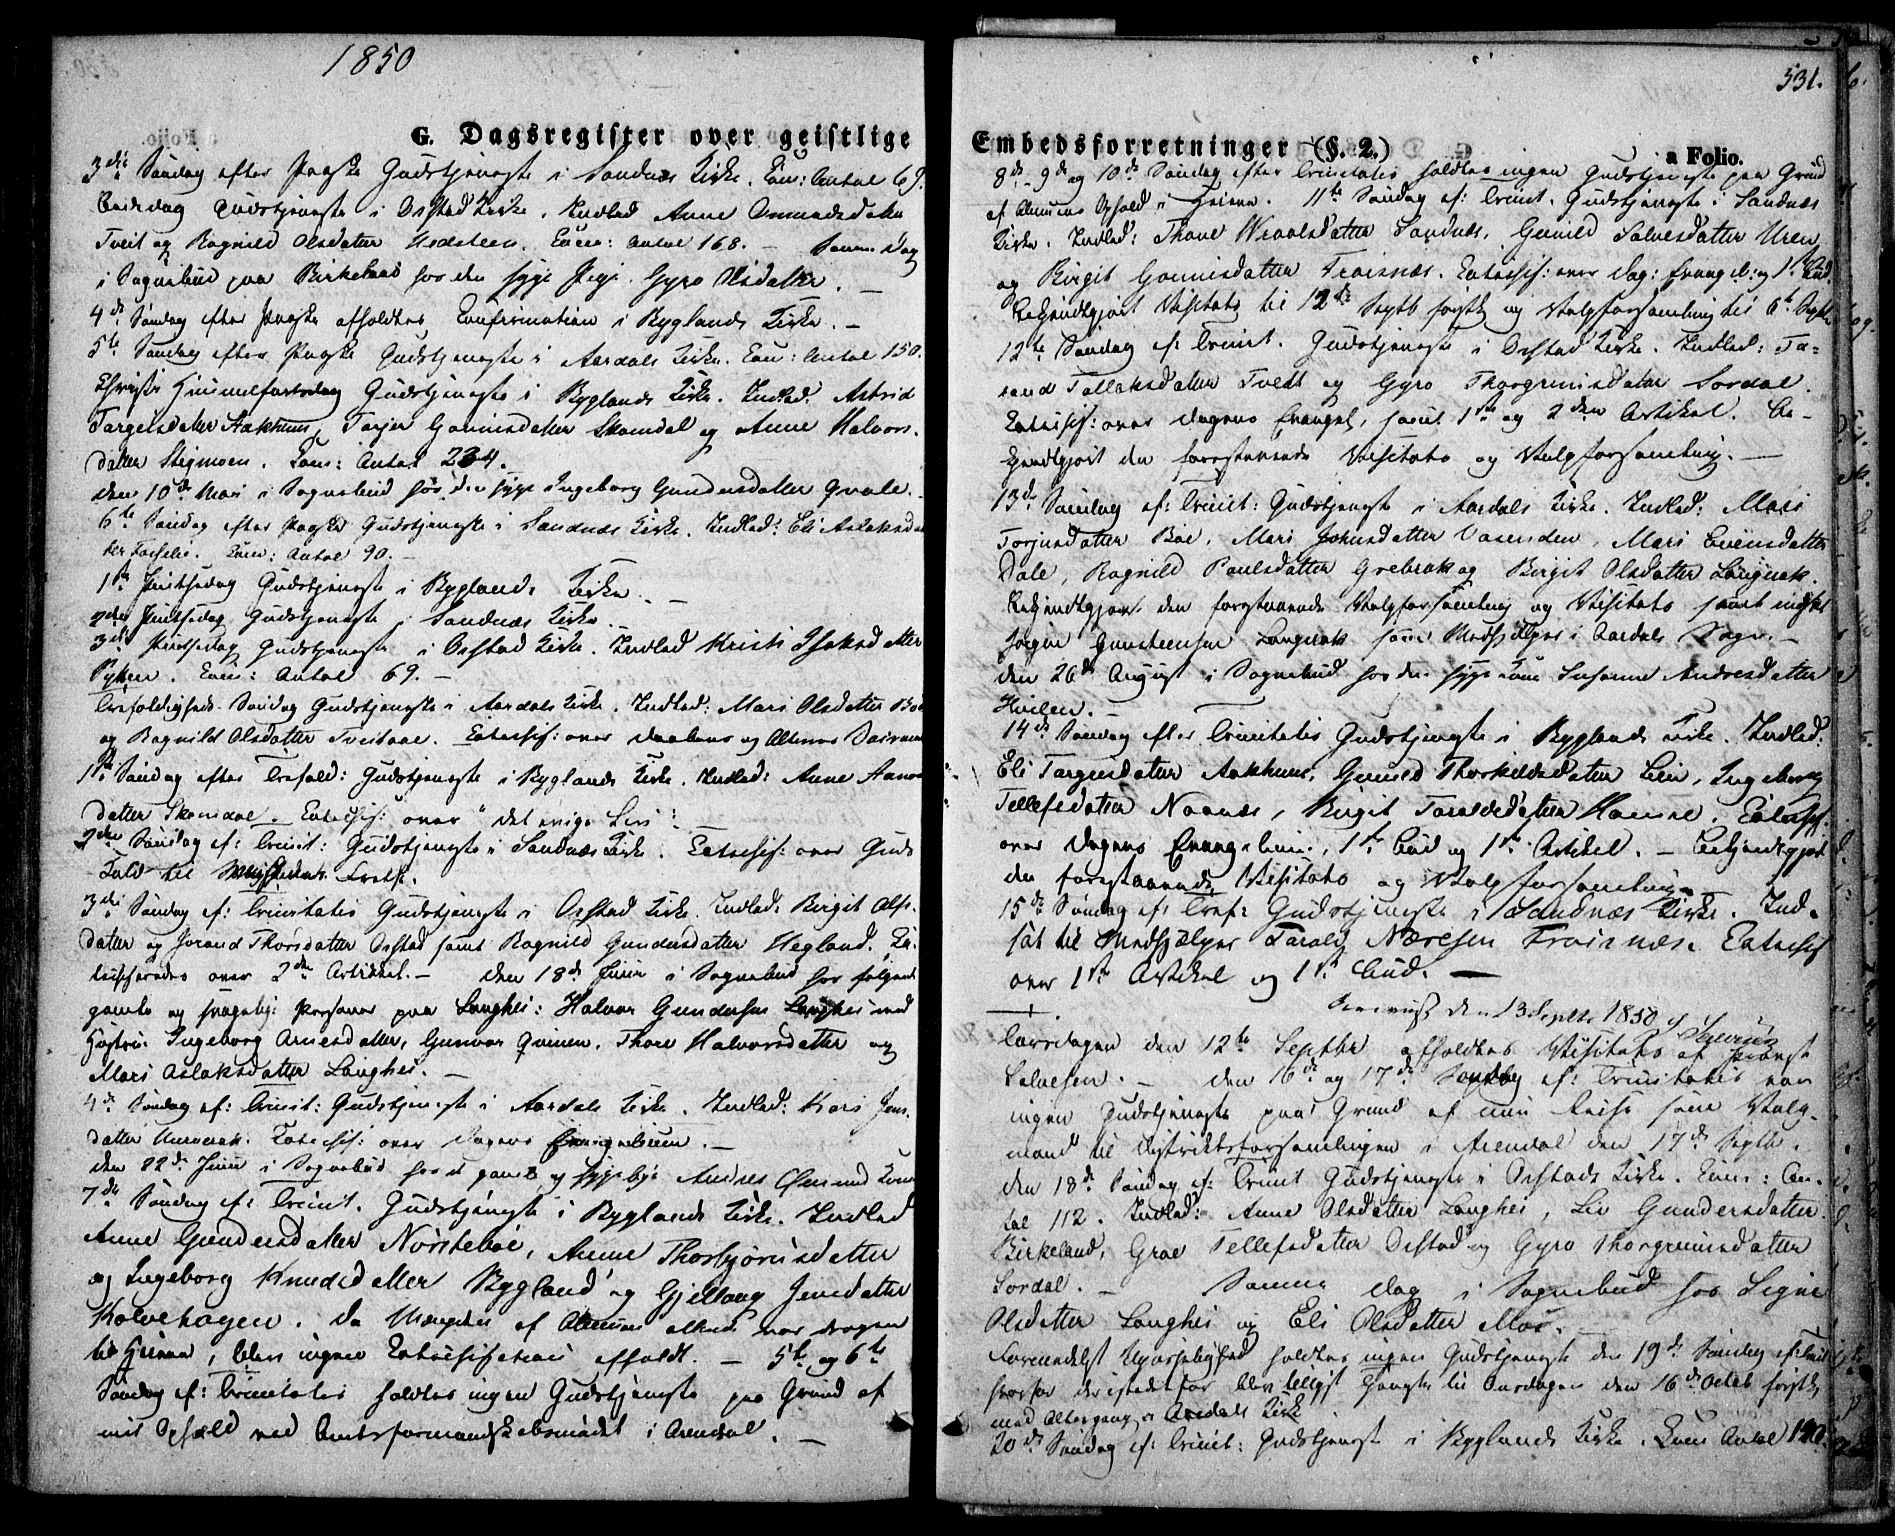 1850
G. Dagsregister over geistlige
3die Søndag efter Paaske Gudstjeneste i Sandnæs Kirke. Com: Antal 69.
Bededag Gudstjeneste i Orstad Kirke. Indled Anne Osmundsdatter
Tveit og Ragnild Olsdatter Hodsteen. Com: Antal 168. — Samme Dag
i Sognebud paa Birkeland hos den syge Pige Gyro Olsdatter. —
4de Søndag efter Paaske afholdtes Confirmation i Byglands Kirke. —
5te Søndag efter Paaske Gudstjeneste i Aardals Kirke. Com: Antal 150.
Christi Himmelfartsdag Gudstjeneste i Byglands Kirke. Indled: Astrid
Targeisdatter Aakhuus, Torjer Gonnisdatter Skomdal og Anne Halvors-
datter Stigmoen. Com: Antal 234.
den 10de Mai i Sognebud hos den syge Ingeborg Gundersdatter Qvale.
6te Søndag efter Paaske Gudstjeneste i Sandnæs Kirke. Indled: Eli Aslaksdat
ter. Com: Antal 90. —
1ste Pintsedag Gudstjeneste i Byglands Kirke. —
2den Pintsedag Gudstjeneste i Sandnæs Kirke. —
3die Pintsedag Gudstjeneste i Orstad Kirke. Indled Kristi Isaksdatter
. Com: Antal 69. —
Trefoldigheds-Søndag Gudstjeneste i Aardals Kirke. Indled: Mari Olsdatter Boe
og Ragnild Olsdatter Tveitaae. Catechis: over Daabens og Alterens
1ste Søndag efter Trefold: Gudstjeneste i Byglands Kirke. Indled: Anne
datter Skomdal. Catechis: over "det evige Liv".
2den Søndag ef: Trinit: Gudstjeneste i Sandnæs Kirke. Catechis: over Guds
Kald til Frelse.
3die Søndag ef: Trinitatis Gudstjeneste i Orstad Kirke. Indled: Birgit Olss-
datter og Jorand Thorsdatter Orstad samt Ragnild Gundersdatter Hegland. Ca-
techiseredes over 2den Artikkel. — den 18de Juni i Sognebud hos følgende
gamle og svagelige Personer paa Langhei: Halvor Gundersen Langhei med
Hustru Ingeborg Arnesdatter, Gunvor Qvinen, Thore Halvorsdatter og
Mari Aslaksdatter Langhei. —
4de Søndag ef: Trinit: Gudstjeneste i Aardals Kirke. Indled: Kari Jens-
datter. Catechis: over Dagens Evangelium. —
den 22de Juni i Sognebud hos et gamle og sygelige Andres Osmund
7de Søndag ef: Trinit. Gudstjeneste i Byglands Kirke. Indled
Anne Gundersdatter Nordteboe, Anne Thorbjørnsdatter
og Ingeborg Knudsdatter Bygland og Gjellaug Jensdatter
Kolvehagen. Da Mængden af Almuen alled. var dragen
til Heiene, blev ingen Catechisation afholdt. — 5te og 6te
Søndag ef: Trinitatis holdtes ingen Gudstjeneste paa Grund af
mit Ophold ved Amtsformandskabsmødet i Arendal. —
531.
Embedsforretninger (§. 2.) a Folio.
8de, 9de og 10de Søndag efter Trinitatis holdtes ingen Gudstjeneste paa Grund
af Almuens Ophold i Heiene. 11te Søndag ef: Trinit. Gudstjeneste i Sandnæs
Kirke. Indled: Thone Wraalsdatter Sandnæs, Gunild Salvesdatter Uren
og Birgit Gonnisdatter Froisnæs. Catechis: over Dag: Evangel: og 1ste Bud.
Bekjendtgjort Visitats til 12te Septb førstk og Valgforsamling til 6te Septb
12te Søndag ef Trinit. Gudstjeneste i Orstad Kirke. Indled: To-
rand Tallaksdatter Tvedt og Gyro Thorgrimsdatter Sordal.
Catechis: over Dagens Evangel, samt 1ste og 2den Artikel. Be-
kjendtgjort den forestaaende Visitats og Valgforsamling. —
13de Søndag ef: Trinit: Gudstjeneste i Aardals Kirke. Indled: Mari
Torjusdatter Boe, Mari Johnsdatter Vasenden, Mari Evensdatter
Dale, Ragnild Paulsdatter Grebrok og Birgit Olsdatter Langerak.
Bekjendtgjort den forestaaende Valgforsamling og Visitats samt indsat
Jørgen Gunsteensen Langerak som Medhjelper i Aardals Sogn. —
den 26de August i Sognebud hos den syge Susanne Andresdatter
Hvilen. —
14de Søndag efter Trinitatis Gudstjeneste i Byglands Kirke. Indled:
Eli Targeisdatter Aakhuus, Gunild Thorkildsdatter Lien, Ingeborg
Tellefsdatter Naanæs, Birgit Taraldsdatter Hamre. Catechis:
over Dagens Evangelium, 1ste Bud og 1ste Artikel. — Bekjendtgjort
den forestaaende Visitats og Valgforsamling.
15de Søndag ef: Tref: Gudstjeneste i Sandnæs Kirke. Ind-
sat til Medhjælper Tarald Næresen Froisnæs. Catechis
over 1ste Artikel og 1ste Bud. —
den 13 Septbr 1850
Torsdagen den 12te Septbr afholdtes Visitats af Provst
Salvesen. — den 16de og 17de Søndag ef: Trinitatis var
ingen Gudstjeneste paa Grund af min Reise som Valg-
mand til Distriktsforsamlingen i Arendal den 17de Septb.
den 18de Søndag ef: Trinit Gudstjeneste i Orstads Kirke. Com: An-
tal 112. Indled: Anne Olsdatter Langhei, Liv Gundersdatter
Birkeland, Groe Tellefsdatter Orstad og Gyro Thorgrimsdatter
Sordal. — Samme Dag i Sognebud hos Signe
Olsdatter Langhei og Eli Olsdatter Moe. —
Formedelst Upasselighed holdtes ingen Gudstjeneste den 19de Søndag ef Trinit
hvorfor der istedetfor blev tillyst Gudstjeneste til Onsdagen den 16de Octob førstk,
med Altergang i Aardals Kirke
20de Søndag ef: Trinit: Gudstjeneste i Byglands Kirke. Com Antal 190.